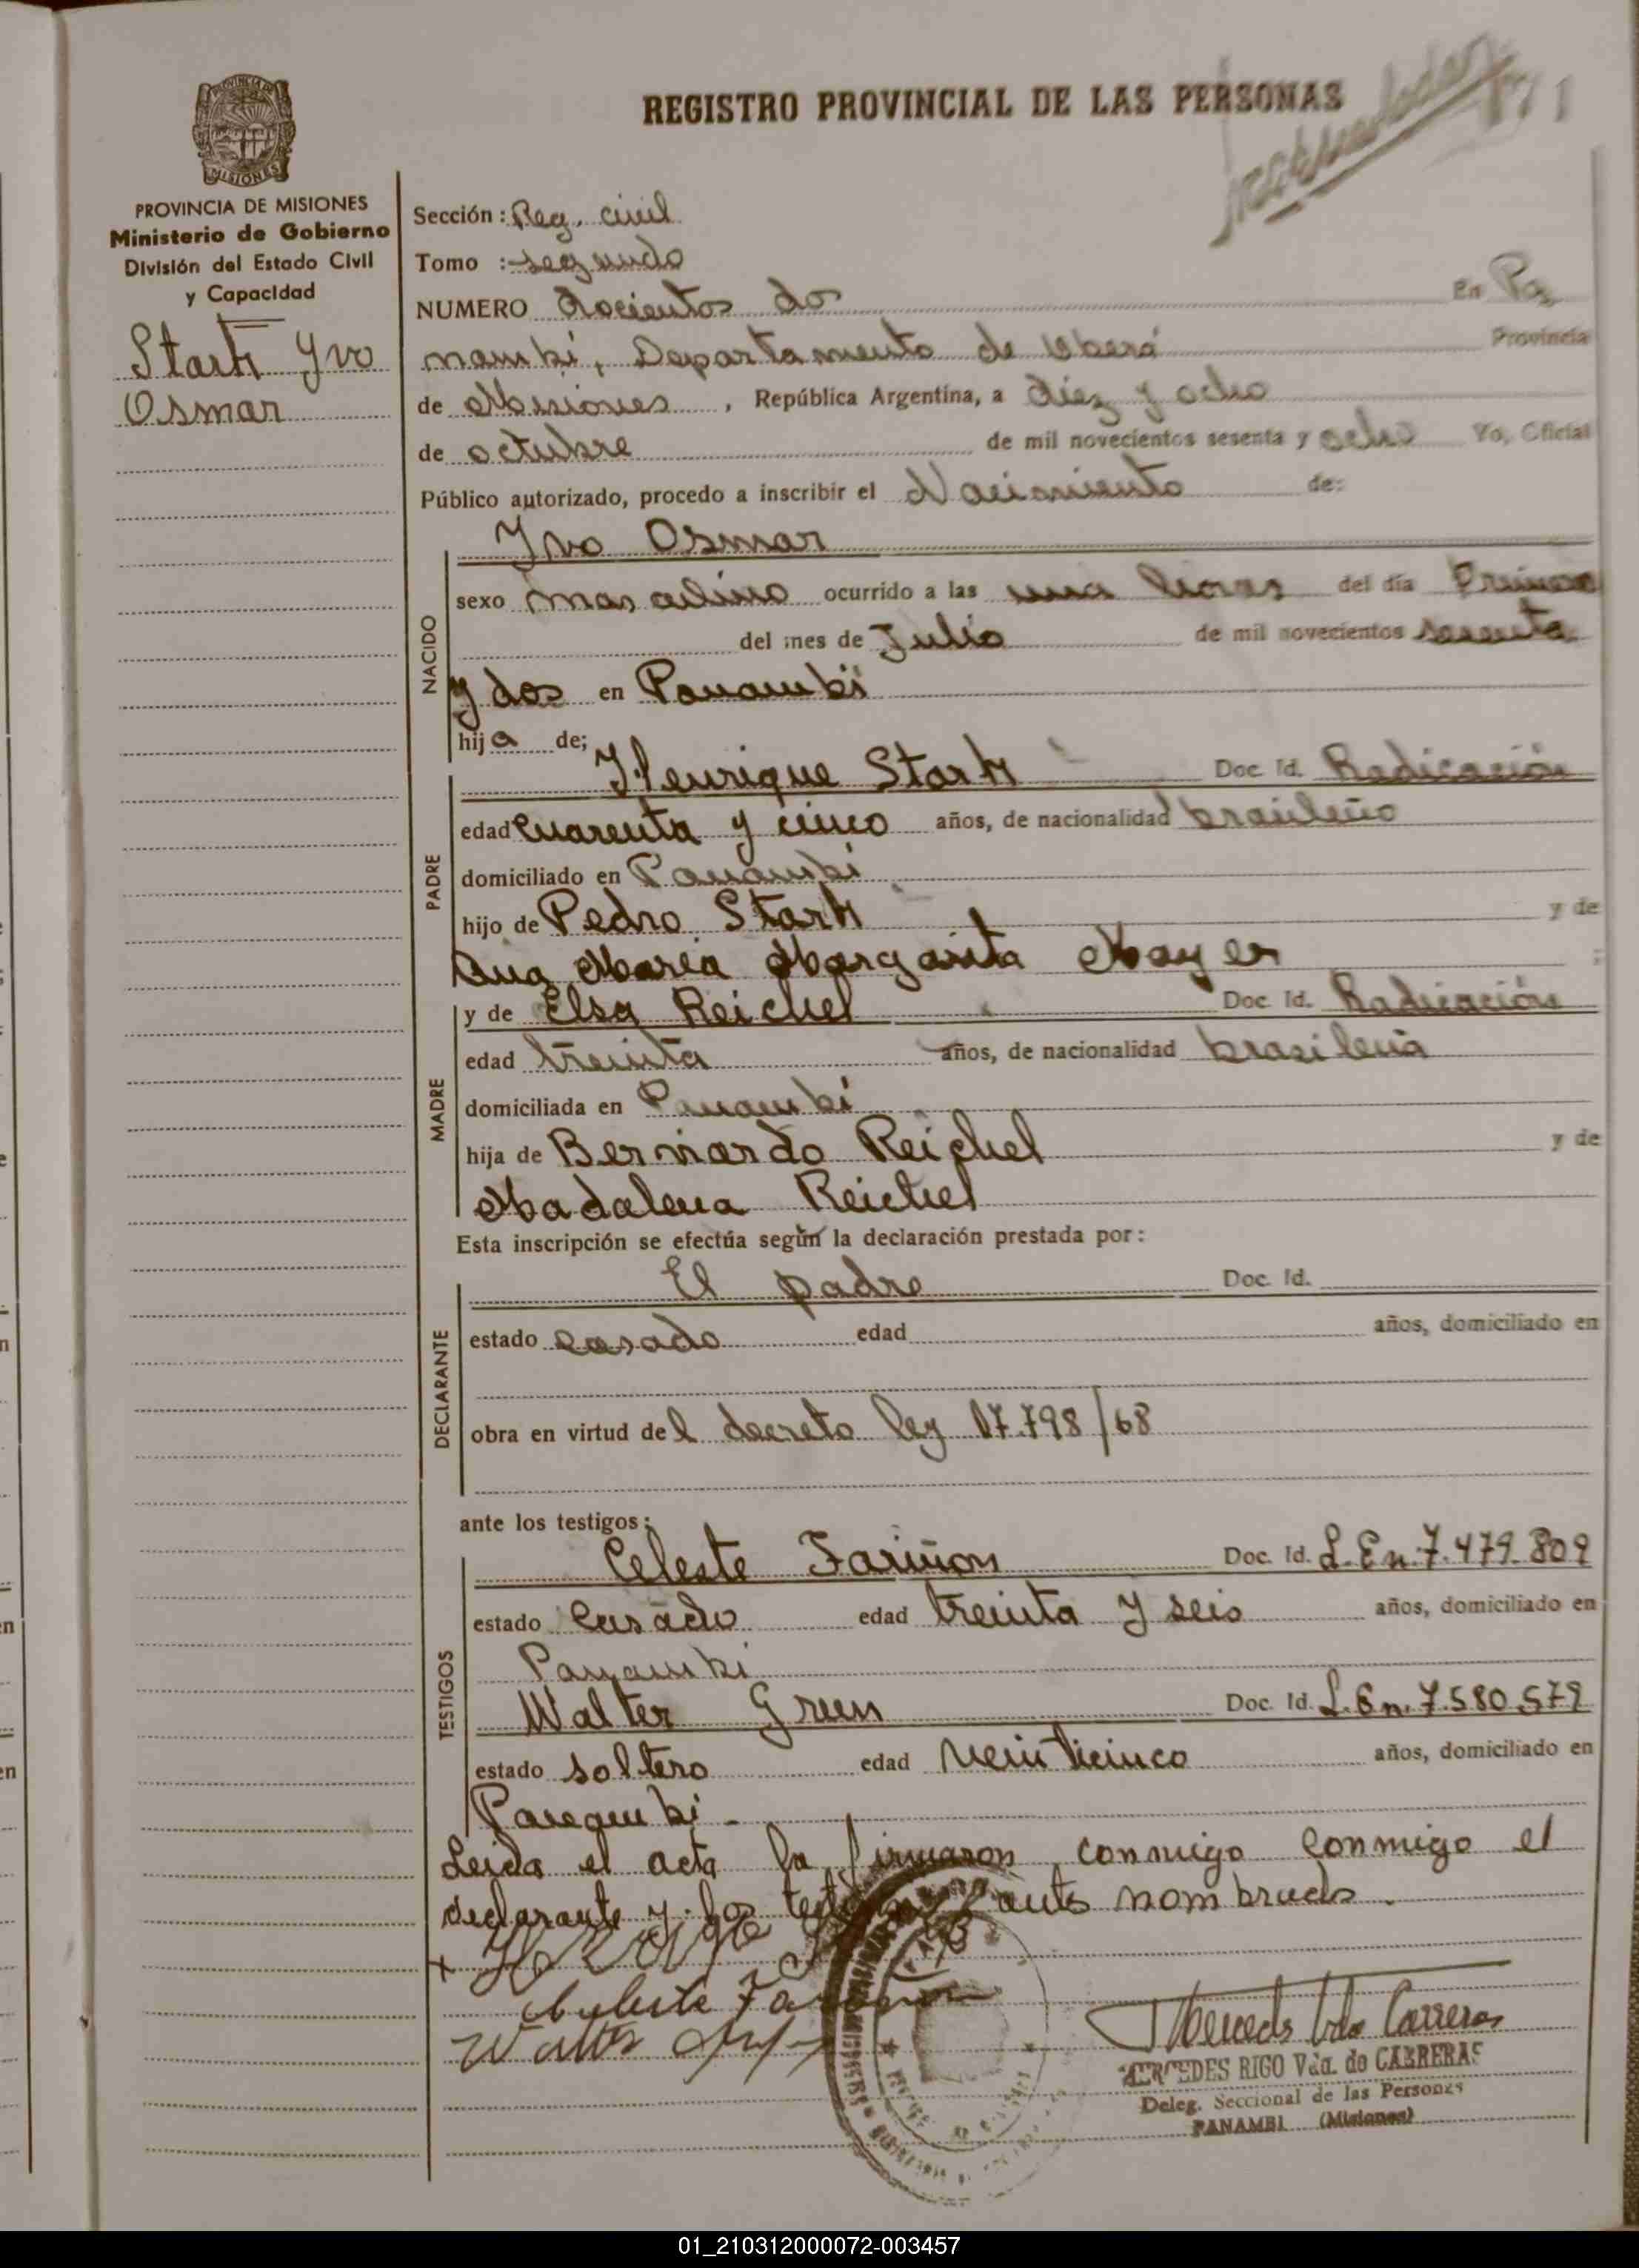 REGISTRO PROVINCIAL DE LAS PERSONAS
71
PROVINCIA DE MISIONES
MISIONES
PROVINCIA DE MISIONES
Ministerio de Gobierno
División del Estado Civil
y Capacidad
Stark Yvo
Osmar
Sección: Reg. civil
Tomo : segundo
NUMERO docientos dos En Pa
nambí, Departamento de Oberá Provincia
de Misiones , República Argentina, a diez y ocho
de octubre de mil novecientos sesenta y ocho Yo, Oficial
Público autorizado, procedo a inscribir el Nacimiento de:
NACIDO
Yvo Osmar
sexo masculino ocurrido a las una horas del día Primero
del mes de Julio de mil novecientos sesenta
y dos en Panambí
hija de;
PADRE
Henrique Stark Doc. Id. Radicación
edad cuarenta y cinco años, de nacionalidad brasileño
domiciliado en Panambí
hijo de Pedro Stark y de
Ana María Margarita Mayer ;
MADRE
y de Elsa Reichel Doc. Id. Radicación
edad treinta años, de nacionalidad brasileña
domiciliada en Panambí
hija de Bernardo Reichel y de
Madalena Reichel
Esta inscripción se efectúa según la declaración prestada por:
DECLARANTE
El padre Doc. Id.
estado casado edad años, domiciliado en
obra en virtud del decreto ley 17.798/68
ante los testigos:
TESTIGOS
Celeste Fariñon Doc. Id. L.En.7.479.809
estado casado edad treinta y seis años, domiciliado en
Panambi
Walter Green Doc. Id. L.En.7.580.579
estado soltero edad veinticinco años, domiciliado en
Panambi -
Leida el acta la firmaron conmigo conmigo el
declarante y los testigos ants nombrados.
Celeste Fariñon
Walter
Mercedes Vda Carreras
MERCEDES RIGO Vda. de CARRERAS
Deleg. Seccional de las Personas
PANAMBI (Misiones)
01_210312000072-003457